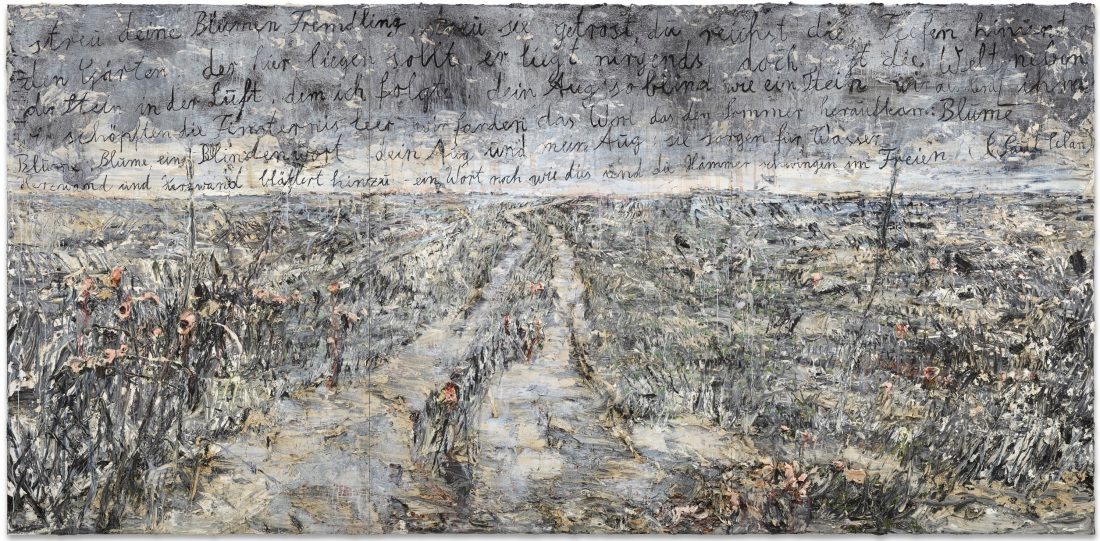 streu deine Blumen Fremdling, streu sie getrost, du reichst die Tiefen hinunter,
den Gärten der hier liegen sollt, er liegt nirgends doch liegt die Welt neben
der Stein in der Luft, dem ich folgt dein Aug so blind wie ein Stein wir
schöpften die Finsternis leer wir fanden das Wort das den Sommer heraufkam: Blume
Blume Blume ein Blindenwort dein Aug und mein Aug : sie sorgen für Wasser (Paul Celan)
Herzwand und Herzwand blättert hinzu - ein Wort noch wie dies und die Hämmer schwingen im Freien